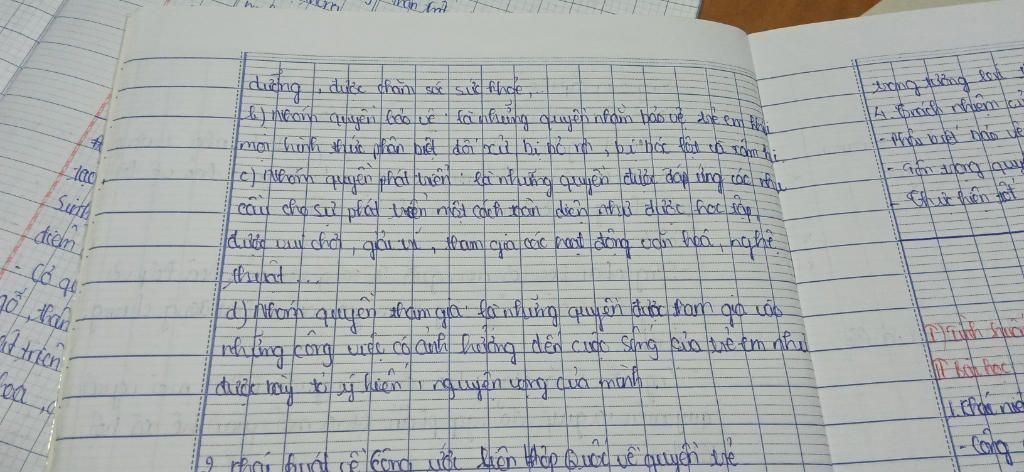 dưỡng, được chăm sóc sức khỏe,...
b) Nhóm quyền bảo vệ: là những quyền nhằm bảo vệ trẻ em khỏi
mọi hình thức phân biệt đối xử bị bỏ rơi, bị bóc lột và xâm hại.
c) Nhóm quyền phát triển: là những quyền được đáp ứng các nhu
cầu cho sự phát triển một cách toàn diện như được học tập,
được vui chơi, giải trí, tham gia các hoạt động văn hoá, nghệ
thuật...
d) Nhóm quyền tham gia: là những quyền được tham gia vào
những công việc có ảnh hưởng đến cuộc sống của trẻ em như
được bày tỏ ý kiến, nguyện vọng của mình.
2. Khái quát về công ước Liên hợp Quốc về quyền trẻ
tạo
Sinh
điểm
- Có
thân
triển
trọng tương
4. Trách nhiệm
- Phân biệt
- Tôn trọng quy
- Thực hiện tốt
I) Tình
II) Bài học
1. Khái niệ
- Công